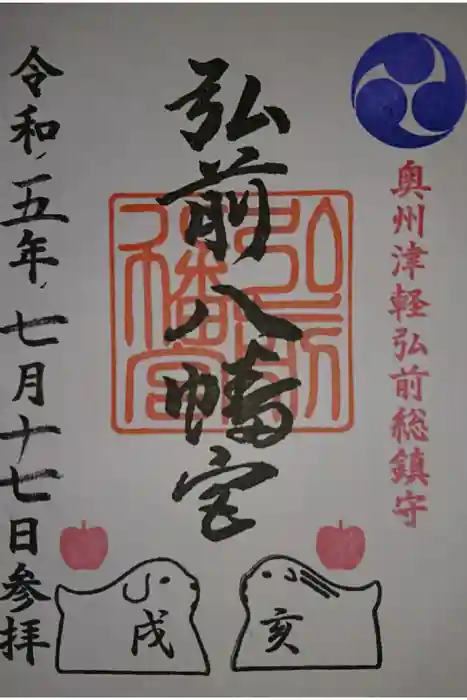 奥州津軽弘前総鎮守
弘前八幡宮
弘前八幡宮
令和五年七月十七日参拝
戌
亥